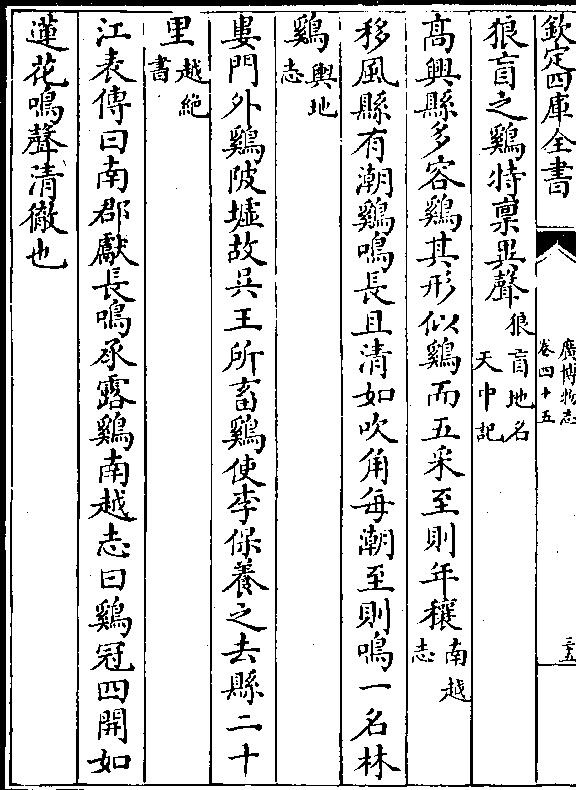 欽定四庫全書
廣博物志
卷四十五
三五
狼𥄫之鷄特稟異聲狼𥄫地名天中記
髙興縣多容鷄其形似鷄而五采至則年穰南越志
移風縣有潮鷄鳴長且清如吹角每潮至則鳴一名林
鷄輿地志
婁門外鷄陂墟故吳王所畜鷄使李保養之去縣二十
里越絶書
江表傳曰南郡獻長鳴承露鷄南越志曰鷄冠四開如
蓮花鳴聲清徹也